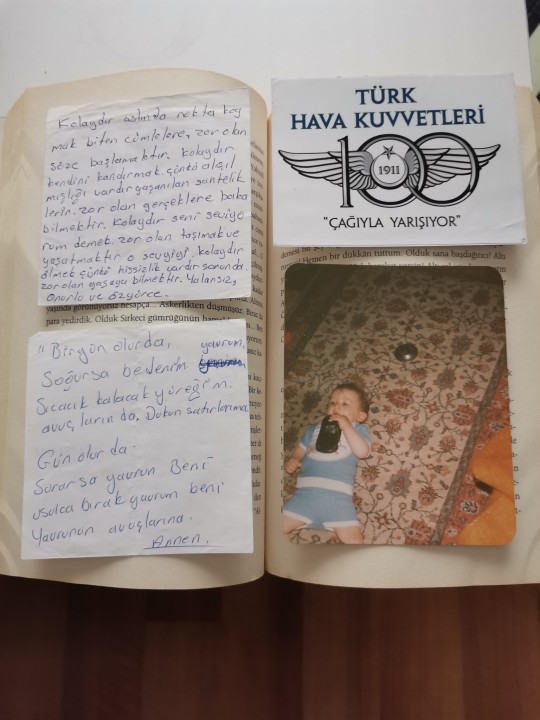 Kolaydır aslında nokta koy
mak biten cümlelere, zor olan
söze başlamaktır. Kolaydır
kendini kandırmak çünkü alışıl
mışlığı vardır yaşanılan sahtelik
lerin. zor olan gerçeklere baka
bilmektir. Kolaydır seni seviyo
rum demek. zor olan taşımak ve
yaşatmaktır o sevgiyi. kolaydır
ölmek çünkü hissizlik vardır sonunda.
zor olan yaşayabilmektir. Yalansız,
Onurlu ve özgürce.
para yedirdik. Olduk Sirkeci gümrüğünün
" Birgün olurda, yavrum,
Soğursa bedenim
Sıcacık kalacak yüreğim.
avuçlarında. Dokun satırlarıma
Gün olur da
Sorarsa yavrun Beni
usulca bırak yavrum beni
Yavrunun avuçlarına.
Annen.
TÜRK
HAVA KUVVETLERİ
100
1911
"ÇAĞIYLA YARIŞIYOR"
Hemen bir dükkân tuttum. Olduk sana başdağıtıcı!